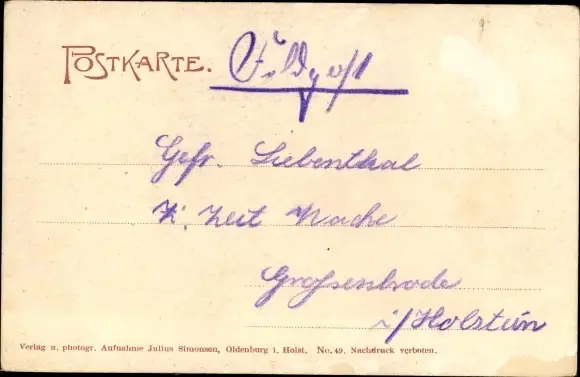 POSTKARTE.
Feldpost
Gefr. Liebenthal
z. Zeit Wache
Großenbrode
i/Holstein
Verlag u. photogr. Aufnahme Julius Simonsen, Oldenburg i. Holst. No. 49. Nachdruck verboten.